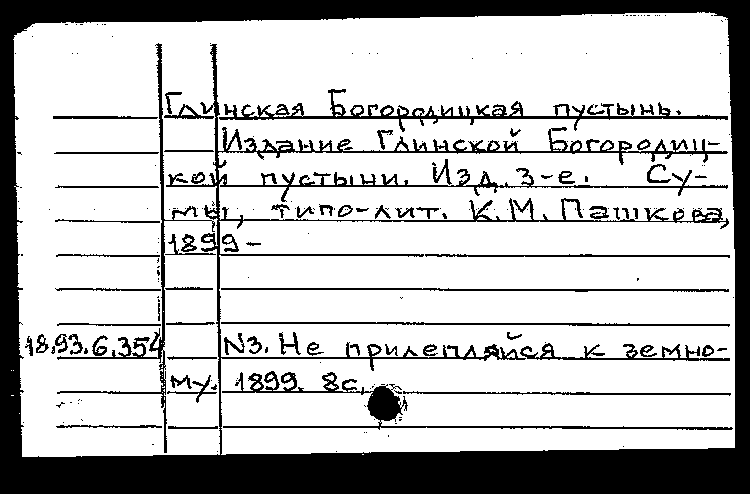 Глинская Богородицкая пустынь.
Издание Глинской Богородиц-
кой пустыни. Изд. 3-е. Су-
мы, типо-лит. К.М. Пашкова,
1899-
18.93.6.354 N3. Не прилепляйся к земно-
му. 1899. 8с.